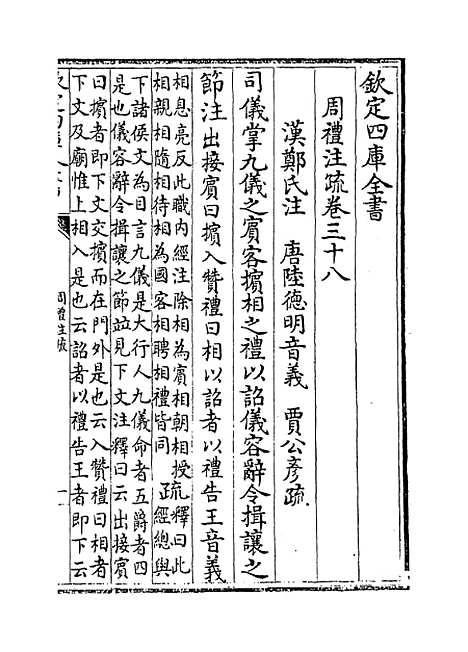 欽定四庫全書
周禮注疏卷三十八
漢鄭氏注 唐陸德明音義 賈公彥疏
司儀掌九儀之賓客擯相之禮以詔儀容辭令揖讓之
節注出接賓曰擯入贊禮曰相以詔者以禮告王音義
相息亮反此職内經注除相為賓相朝相授
相親相隨相待相為國客相聘相禮皆同 疏釋曰此
經總與
下諸侯文為目言九儀是大行人九儀命者五爵者四
是也儀容辭令揖讓之節竝見下文注釋曰云出接賓
曰擯者即下文交擯而在門外是也云入贊禮曰相者
下文及廟惟上相入是也云詔者以禮告王者即下云
周禮注疏
一